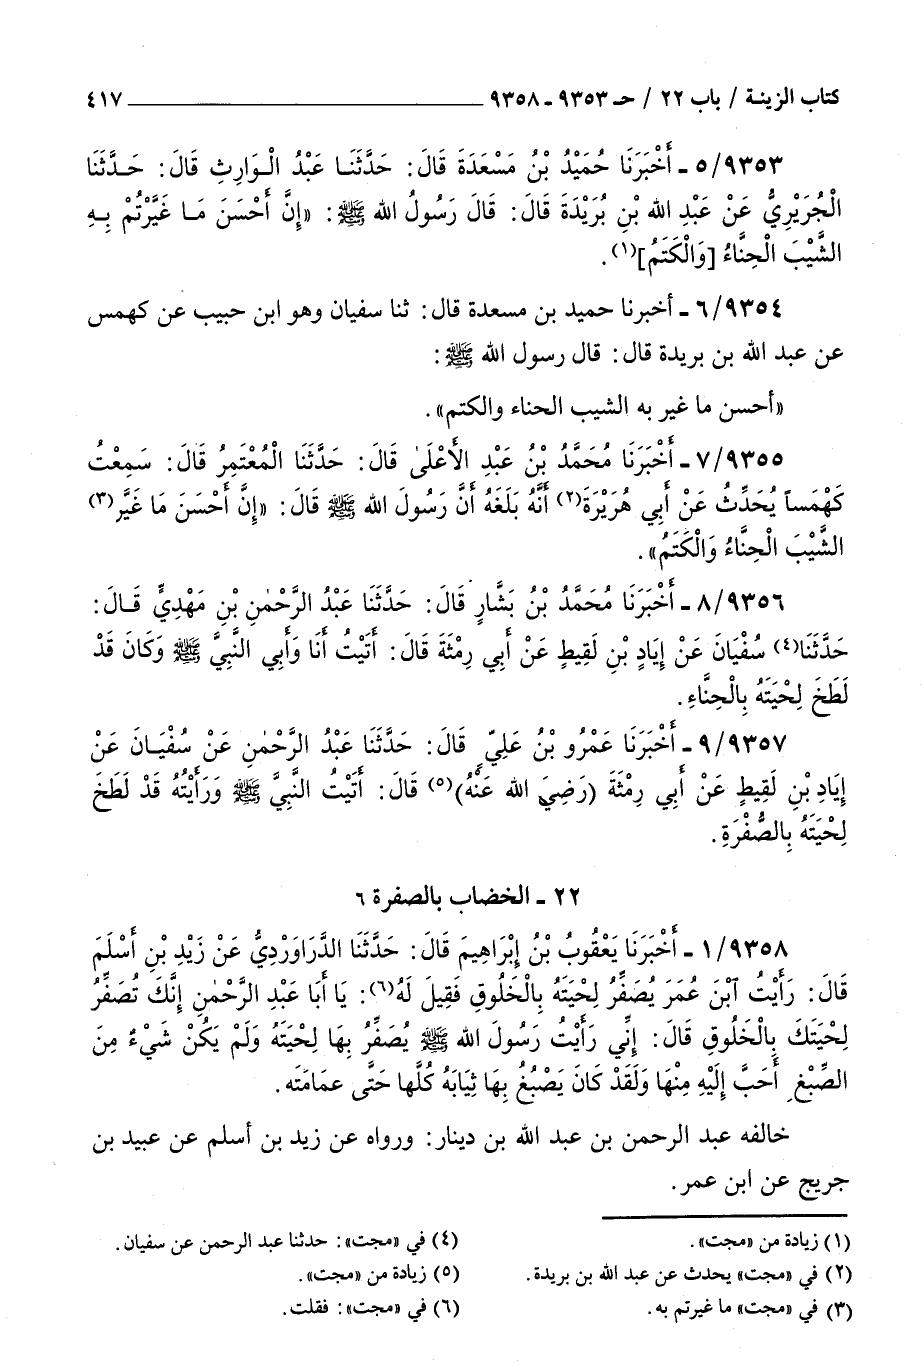 كتاب الزينة / باب ٢٢ / حـ ٩٣٥٣ - ٩٣٥٨ ٤١٧
٥/٩٣٥٣ - أَخْبَرَنَا حُمَيْدُ بْنُ مَسْعَدَةَ قَالَ: حَدَّثَنَا عَبْدُ الْوَارِثِ قَالَ: حَدَّثَنَا
الْجُرَيْرِيُّ عَنْ عَبْدِ الله بْنِ بُرَيْدَةَ قَالَ: قَالَ رَسُولُ الله ﷺ: «إِنَّ أَحْسَنَ مَا غَيَّرْتُمْ بِهِ
الشَّيْبَ الْحِنَّاءُ [وَالْكَتَمُ](١).
٦/٩٣٥٤ - أخبرنا حميد بن مسعدة قال: ثنا سفيان وهو ابن حبيب عن كهمس
عن عبد الله بن بريدة قال: قال رسول الله ﷺ:
«أحسن ما غير به الشيب الحناء والكتم».
٧/٩٣٥٥ - أَخْبَرَنَا مُحَمَّدُ بْنُ عَبْدِ الأَعْلَىٰ قَالَ: حَدَّثَنَا الْمُعْتَمِرُ قَالَ: سَمِعْتُ
كَهْمَساً يُحَدِّثُ عَنْ أَبِي هُرَيْرَةَ(٢) أَنَّهُ بَلَغَهُ أَنَّ رَسُولَ الله ﷺ قَالَ: «إِنَّ أَحْسَنَ مَا غَيَّرَ(٣)
الشَّيْبَ الْحِنَّاءُ وَالْكَتَمُ».
٨/٩٣٥٦ - أَخْبَرَنَا مُحَمَّدُ بْنُ بَشَّارٍ قَالَ: حَدَّثَنَا عَبْدُ الرَّحْمٰنِ بْنِ مَهْدِيٍّ قَالَ:
حَدَّثَنَا(٤) سُفْيَانَ عَنْ إِيَادِ بْنِ لَقِيطٍ عَنْ أَبِي رِمْثَةَ قَالَ: أَتَيْتُ أَنَا وَأَبِي النَّبِيَّ ﷺ وَكَانَ قَدْ
لَطَخَ لِحْيَتَهُ بِالْحِنَّاءِ.
٩/٩٣٥٧ - أَخْبَرَنَا عَمْرُو بْنُ عَلِيٍّ قَالَ: حَدَّثَنَا عَبْدُ الرَّحْمٰنِ عَنْ سُفْيَانَ عَنْ
إِيَادِ بْنِ لَقِيطٍ عَنْ أَبِي رِمْثَةَ (رَضِيَ الله عَنْهُ)(٥) قَالَ: أَتَيْتُ النَّبِيَّ ﷺ وَرَأَيْتُهُ قَدْ لَطَخَ
لِحْيَتَهُ بِالصُّفْرَةِ.
٢٢ - الخضاب بالصفرة ٦
١/٩٣٥٨ - أَخْبَرَنَا يَعْقُوبُ بْنُ إِبْرَاهِيمَ قَالَ: حَدَّثَنَا الدَّرَاوَرْدِيُّ عَنْ زَيْدِ بْنِ أَسْلَمَ
قَالَ: رَأَيْتُ ابْنَ عُمَرَ يُصَفِّرُ لِحْيَتَهُ بِالْخَلُوقِ فَقِيلَ لَهُ(٦): يَا أَبَا عَبْدِ الرَّحْمٰنِ إِنَّكَ تُصَفِّرُ
لِحْيَتَكَ بِالْخَلُوقِ قَالَ: إِنِّي رَأَيْتُ رَسُولَ الله ﷺ يُصَفِّرُ بِهَا لِحْيَتَهُ وَلَمْ يَكُنْ شَيْءٌ مِنَ
الصِّبْغِ أَحَبَّ إِلَيْهِ مِنْهَا وَلَقَدْ كَانَ يَصْبُغُ بِهَا ثِيَابَهُ كُلَّهَا حَتَّى عمَامَتَه.
خالفه عبد الرحمن بن عبد الله بن دينار: ورواه عن زيد بن أسلم عن عبيد بن
جريج عن ابن عمر.
(١) زيادة من «مجت».
(٢) في «مجت» يحدث عن عبد الله بن بريدة.
(٣) في «مجت» ما غيرتم به.
(٤) في «مجت»: حدثنا عبد الرحمن عن سفيان.
(٥) زيادة من «مجت».
(٦) في «مجت»: فقلت.